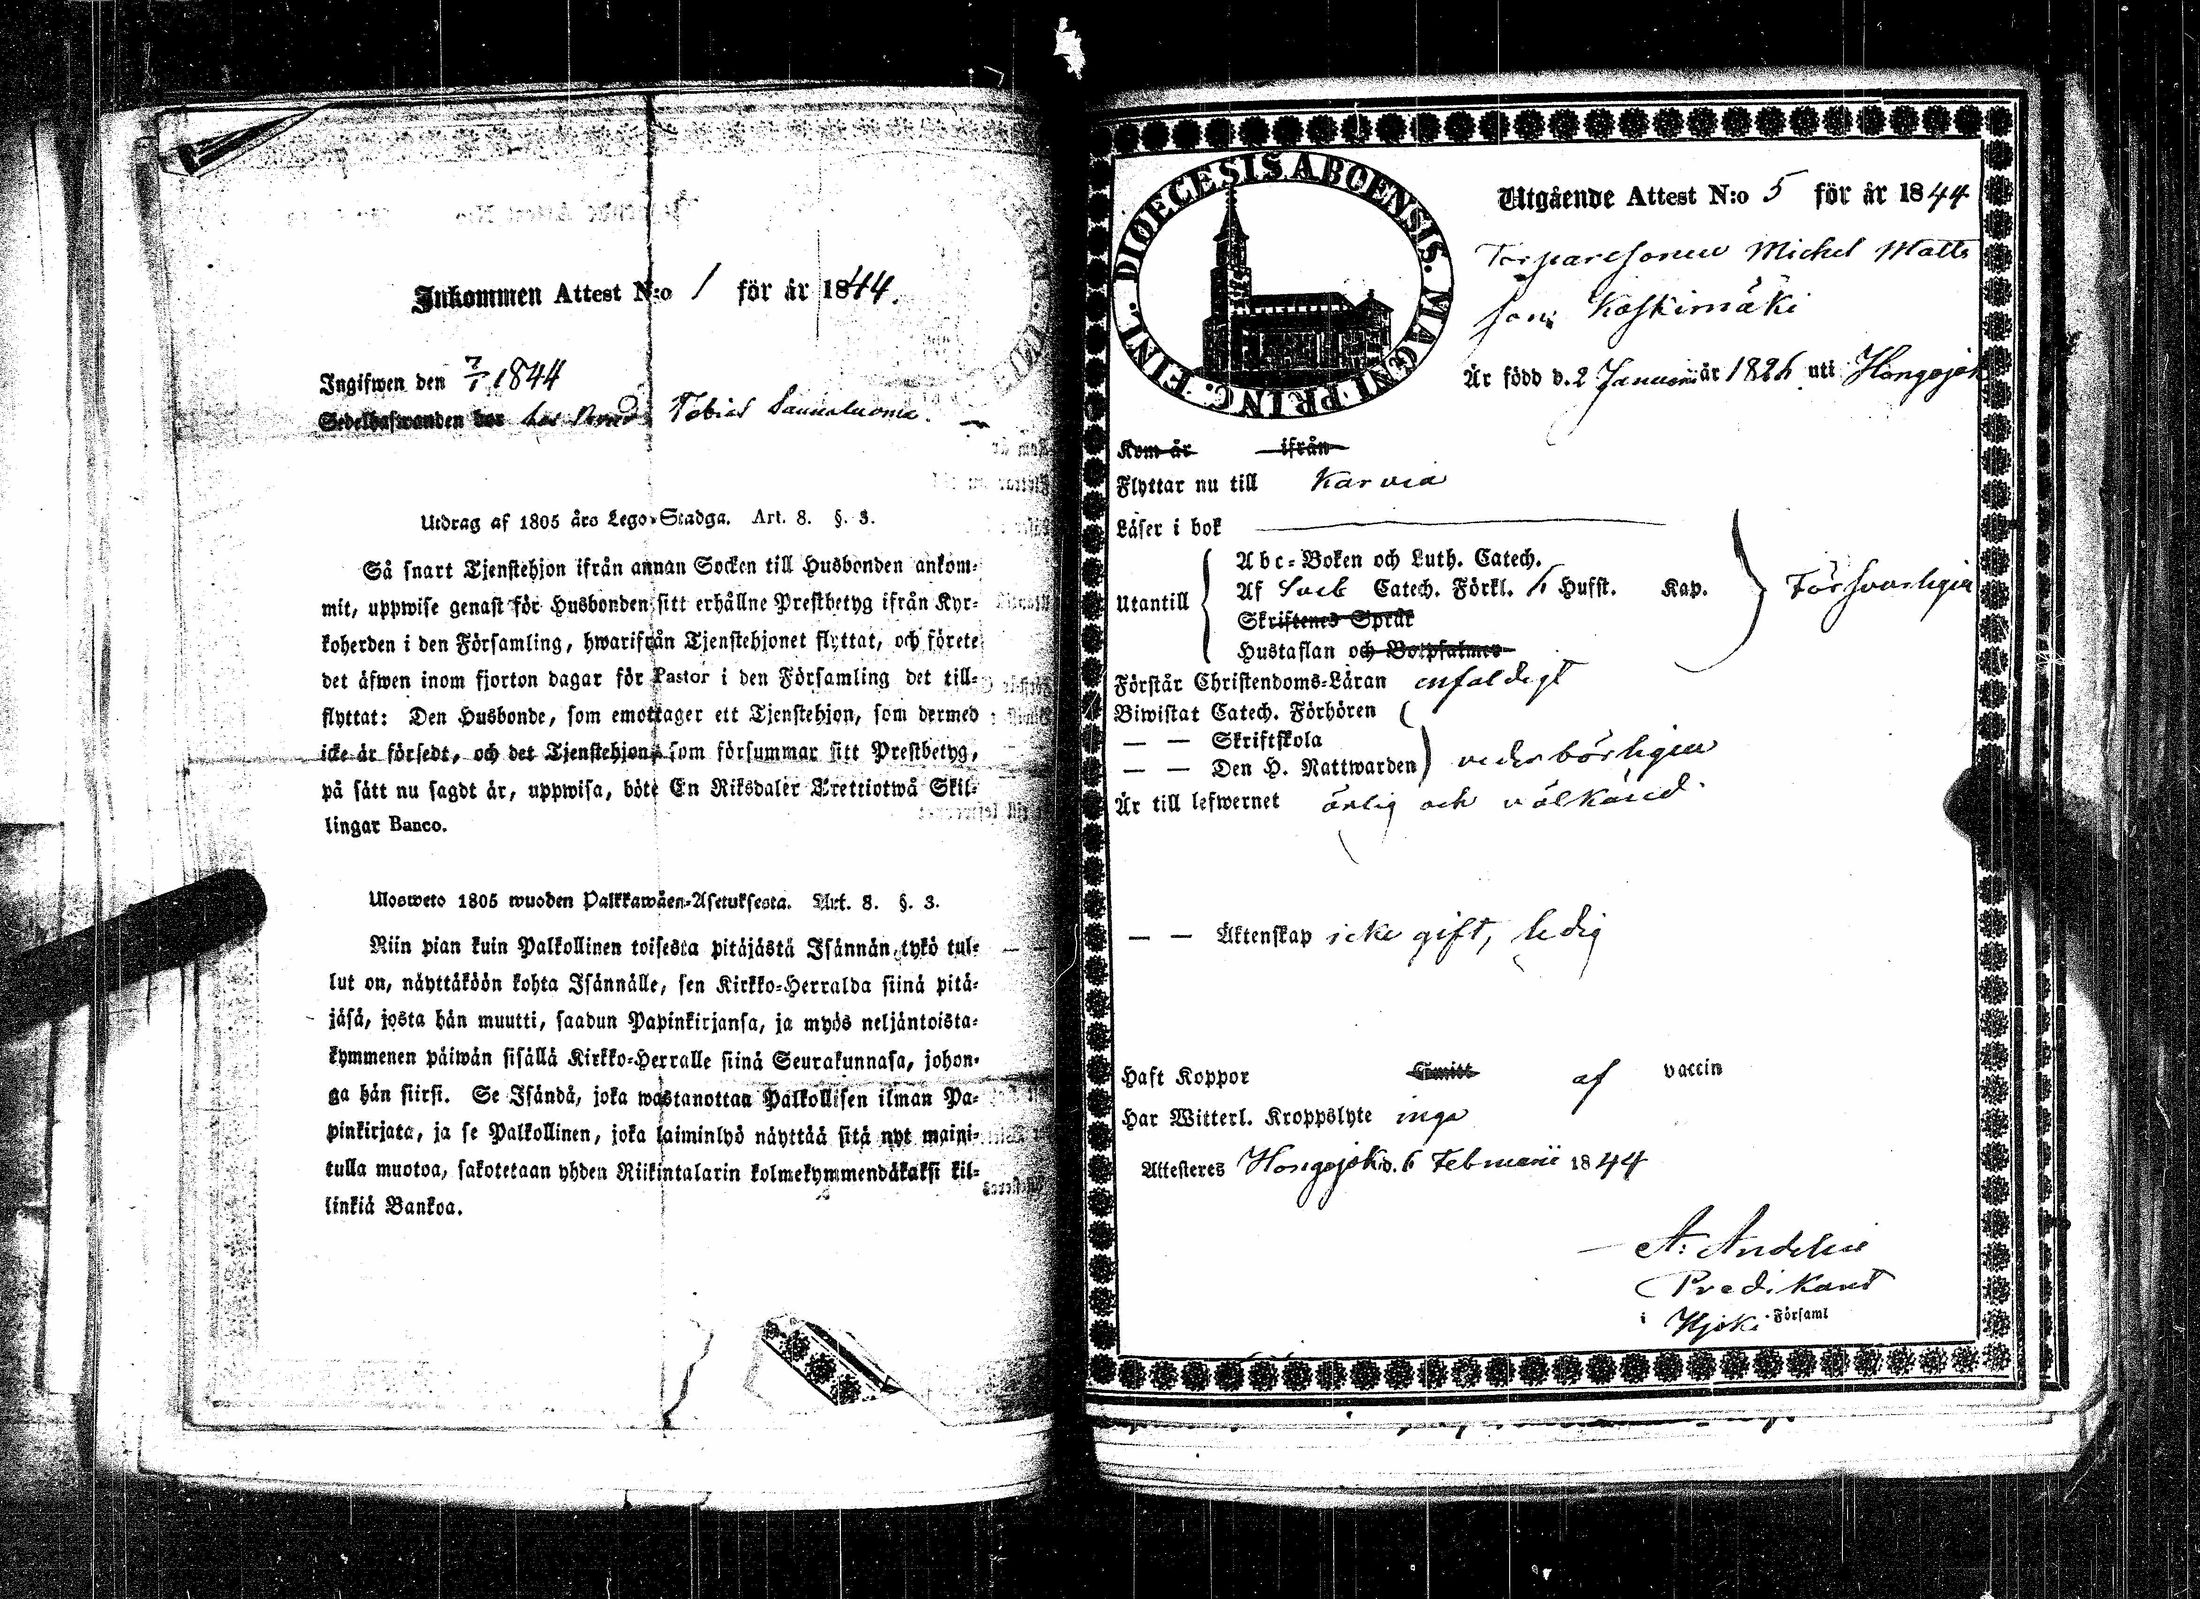 Inkommen Attest N:o 1 för år 1844.
Ingifwen den 7/1 1844
Sedelhafwanden bor hos Bond. Tobias Saunaluoma.
Utdrag af 1805 års Lego-Stadga. Art. 8. §. 3.
Så snart Tjenstehjon ifrån annan Socken till Husbonden ankom-
mit, uppwise genast för Husbonden sitt erhållne Prestbetyg ifrån Kyr-
koherden i den Församling, hwarifrån Tjenstehjonet flyttat, och förete
det äfwen inom fjorton dagar för Pastor i den Församling det till-
flyttat: Den Husbonde, som emottager ett Tjenstehjon, som dermed
icke är försedt, och det Tjenstehjon, som försummar sitt Prestbetyg,
på sätt nu sagdt är, uppwisa, böte En Riksdaler Trettiotwå Skil-
lingar Banco.
Ulosweto 1805 wuoden Palkkawäen-Asetuksesta. Art. 8. §. 3.
Niin pian kuin Palkollinen toisesta pitäjästä Isännän tykö tul-
lut on, näyttäköön kohta Isännälle, sen Kirkko-Herralda siinä pitä-
jäsä, josta hän muutti, saadun Papinkirjansa, ja myös neljäntoista-
kymmenen päiwän sisällä Kirkko-Herralle siinä Seurakunnasa, johon-
ga hän siirsi. Se Isändä, joka wastanottaa Palkollisen ilman Pa-
pinkirjata, ja se Palkollinen, joka laiminlyö näyttää sitä nyt maini-
tulla muotoa, sakotetaan yhden Riikintalarin kolmekymmendäkaksi kil-
linkiä Bankoa.
DIOECESIS ABOENSIS. MAGNI PRINC. FINL.
Utgående Attest N:o 5 för år 1844
Torparesonen Michel Matts
son Koskimäki
Är född d. 2 Januarii år 1826 uti Hongojok
Kom år ifrån
Flyttar nu till Karvia
Läser i bok
Utantill
Abc-Boken och Luth. Catech.
Af Sveb Catech. Förkl. 6 Hufst. Kap.
Skriftenes Språk
Hustaflan och Botpsalmer
Försvarligen
Förstår Christendoms-Läran enfaldigt
Biwistat Catech. Förhören
— — Skriftskola
— — Den H. Nattwarden
vederbörligen
Är till lefwernet ärlig och välkänd.
— — Äktenskap icke gift, ledig
Haft Koppor Smitt af vaccin
Har Witterl. Kroppslyte inga
Attesteres Hongojoki d. 6 Februarii 1844
A. Andelin
Predikant
i Hjoki Församl